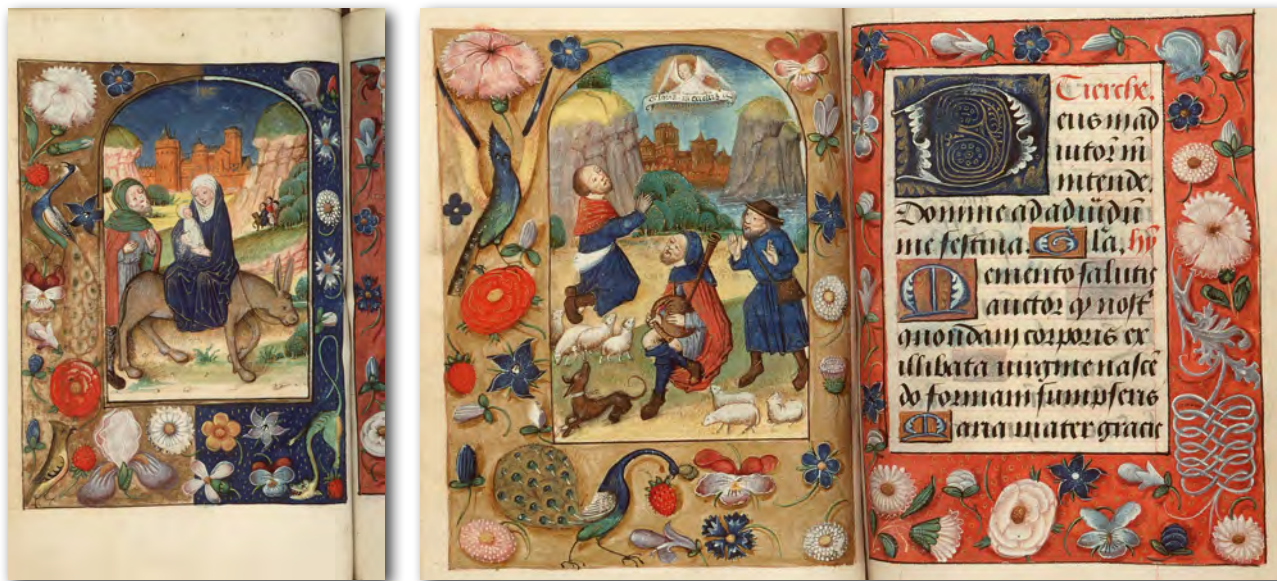 excelsis
Tierche.
eus in ad
iutoriū m
intende.
Domine ad adiuuādū
me festina. Gła. hy
Memento salutis
auctor ꝙ nost'
quondam corporis ex
illibata uirgine nascē
do formam sumpseris
Maria mater gracie